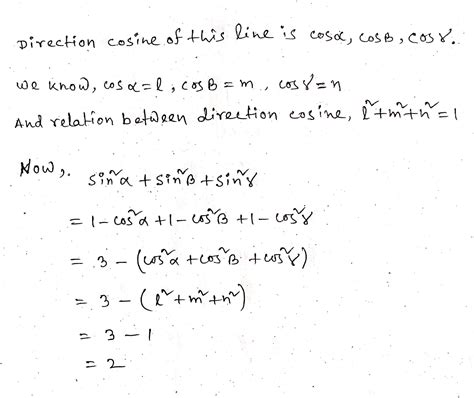 Direction cosine of this line is cosα, cosβ, cosγ.
We know, cosα = l, cosβ = m, cosγ = n
And relation between direction cosine, l²+m²+n² = 1
Now,
sin²α + sin²β + sin²γ
= 1 - cos²α + 1 - cos²β + 1 - cos²γ
= 3 - (cos²α + cos²β + cos²γ)
= 3 - (l²+m²+n²)
= 3 - 1
= 2